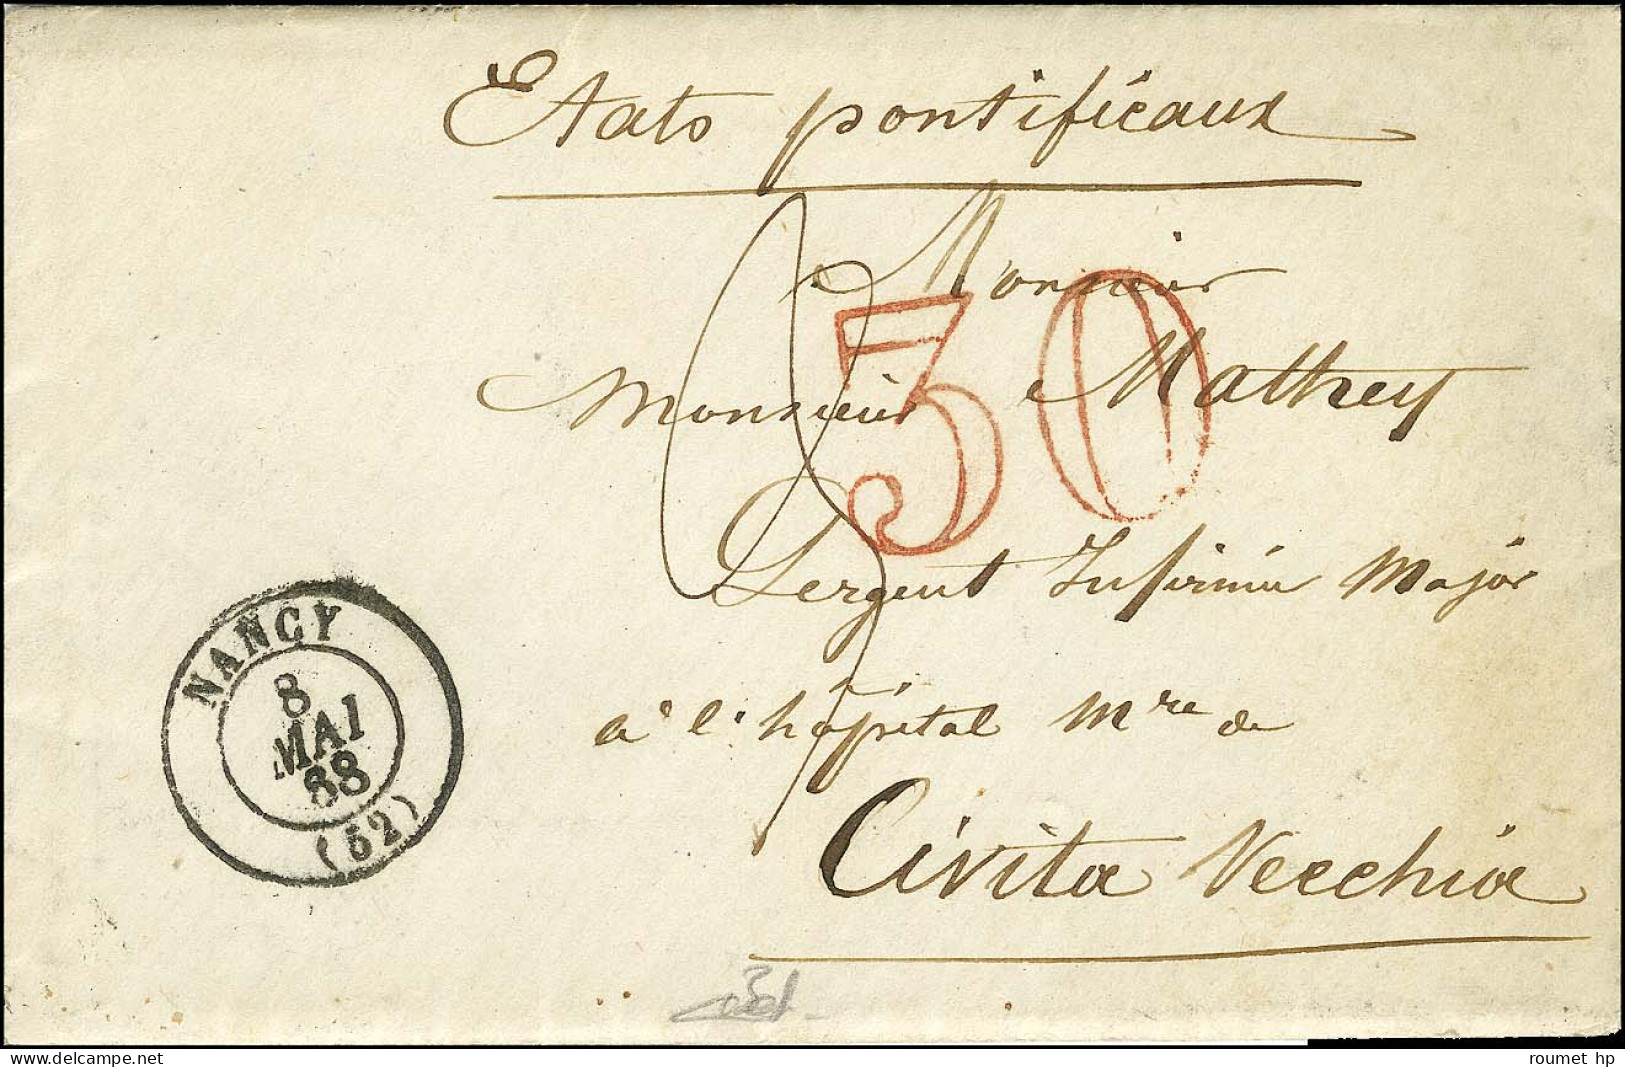 Etats pontificaux
Monsieur
Monsieur Mathey
30
Sergent Infirmier Major
à l'hôpital Mre de
Civita Vecchia
NANCY
8
MAI
68
(52)
roumet hp